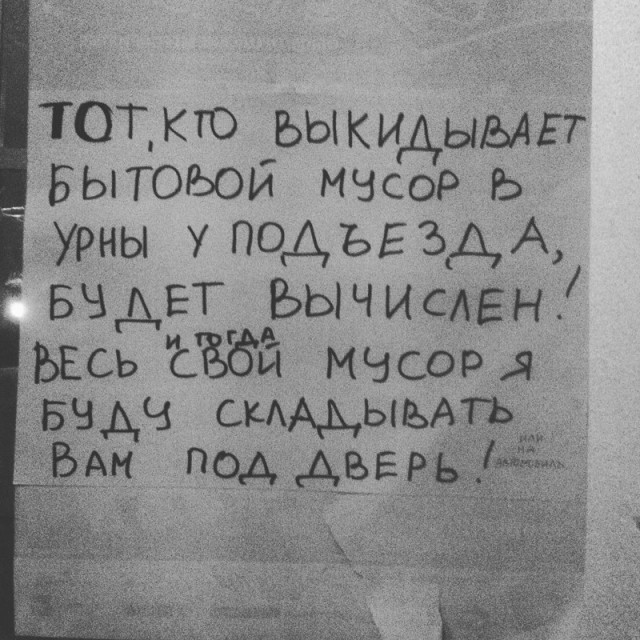 ТОТ, КТО ВЫКИДЫВАЕТ
БЫТОВОЙ МУСОР В
УРНЫ У ПОДЪЕЗДА,
БУДЕТ ВЫЧИСЛЕН!
И ТОГДА
ВЕСЬ СВОЙ МУСОР Я
БУДУ СКЛАДЫВАТЬ
ВАМ ПОД ДВЕРЬ!
ИЛИ
НА